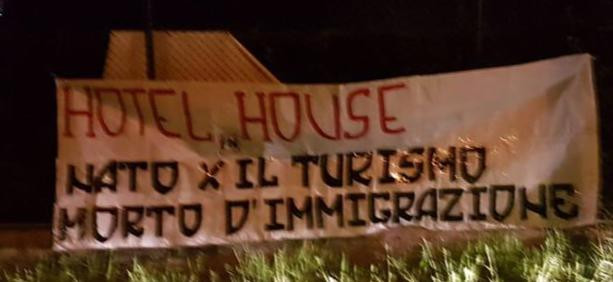 HOTEL HOUSE
NATO X IL TURISMO
MORTO D'IMMIGRAZIONE